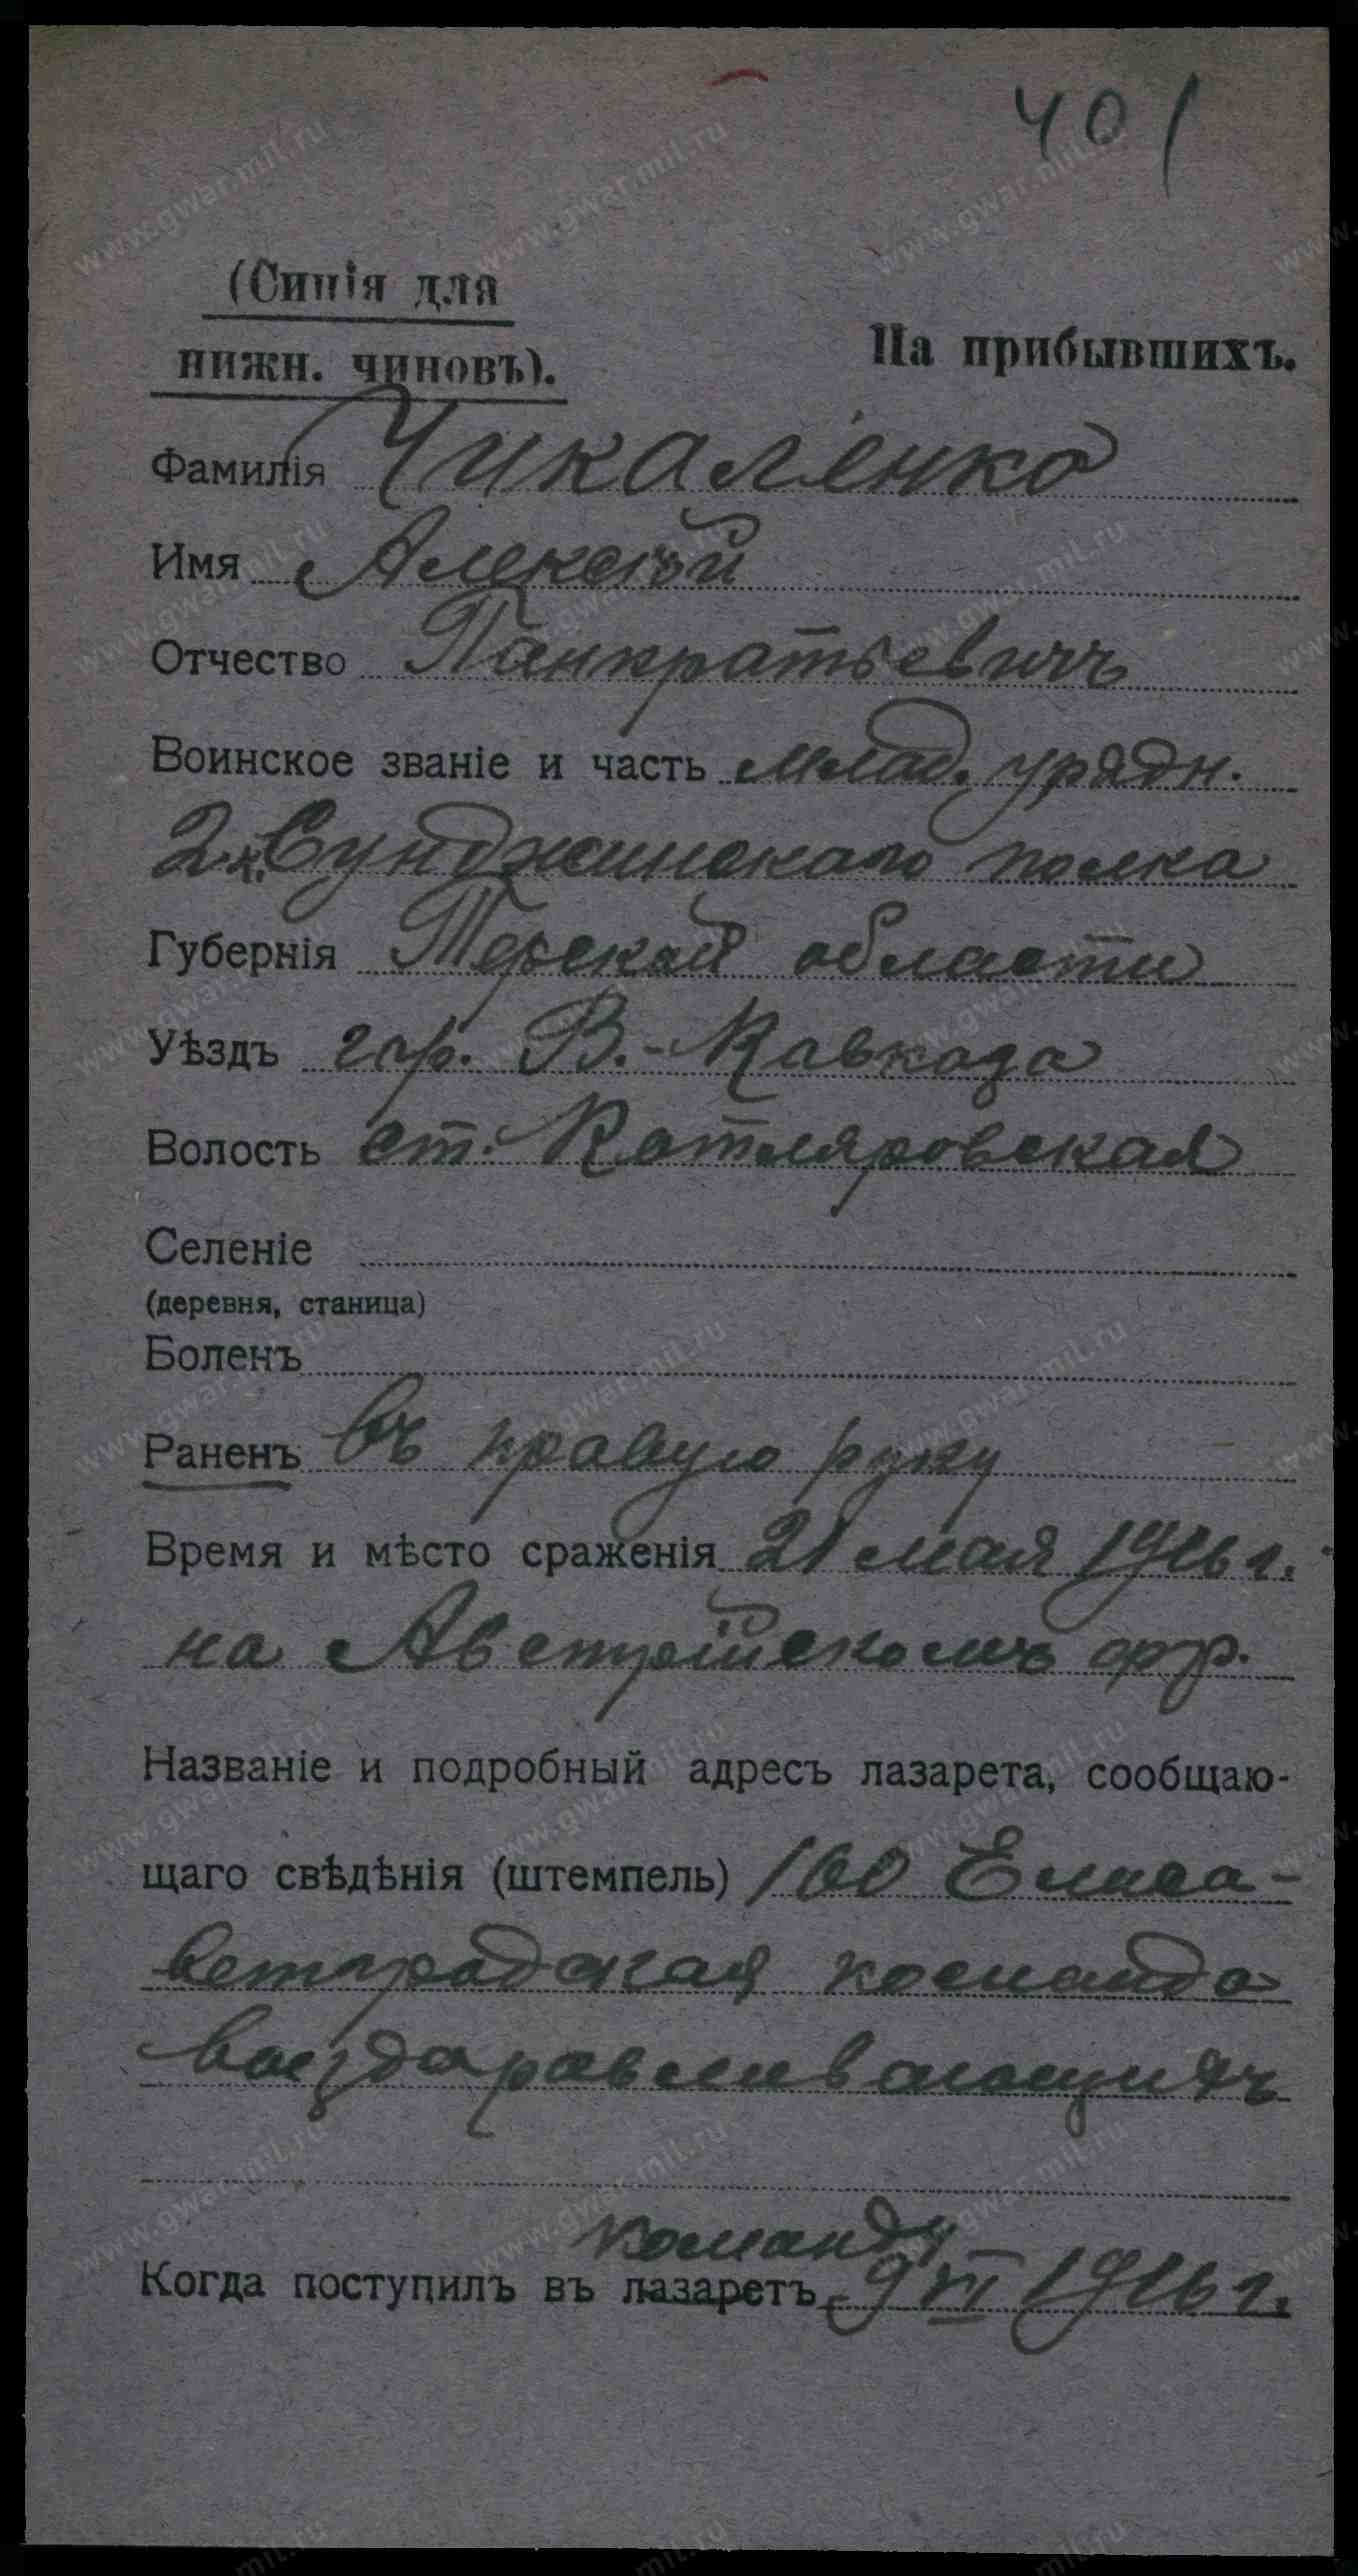 401
(Синія для
нижн. чиновъ).
На прибывшихъ.
Фамилія Чикаленко
Имя Алексѣй
Отчество Панкратьевичъ
Воинское званіе и часть млад. урядн.
2 к. Сунджинскаго полка
Губернія Терской области
Уѣздъ гор. В.-Кавказа
Волость ст. Котляровская
Селеніе
(деревня, станица)
Боленъ
Раненъ въ правую руку
Время и мѣсто сраженія 21 мая 1916 г.
на Австрійскомъ фр.
Названіе и подробный адресъ лазарета, сообщаю-
щаго свѣдѣнія (штемпель) 160 Елиса-
ветградская команда
выздоравливающихъ
команду
Когда поступилъ въ лазаретъ 9 VI 1916 г.
www.gwar.mil.ru